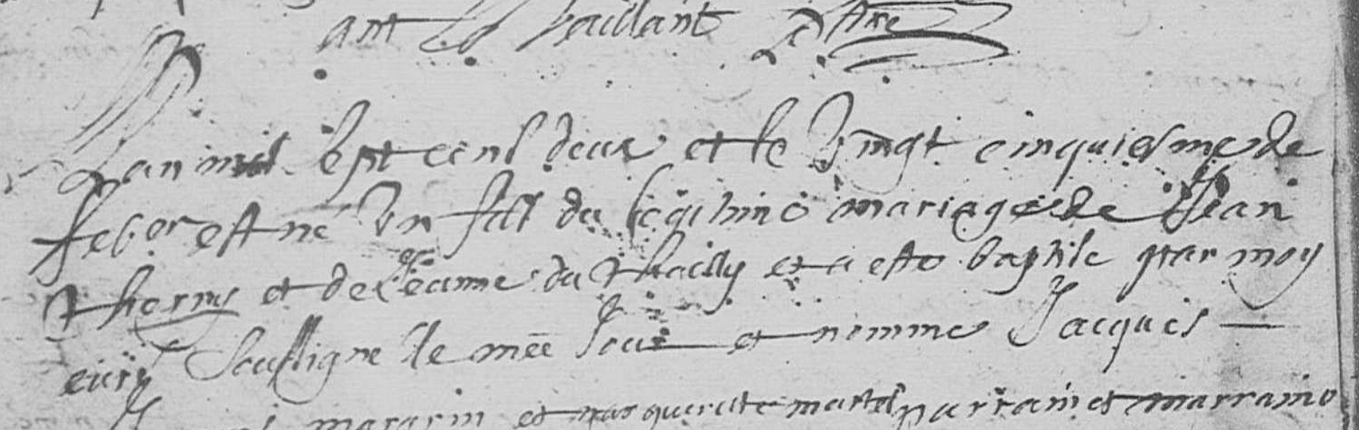 ant Le Vaillant Pstre
Lan mil sept cens deux et le vingt cinquiesme de
febvr est né un fils du legitime mariage de Jean
Therny et de Jeanne du Thailly et a esté baptise par moy
curé soussigne le mēe jour et nomme Jacques —
mazarin et marguerite martel parrain et marraine